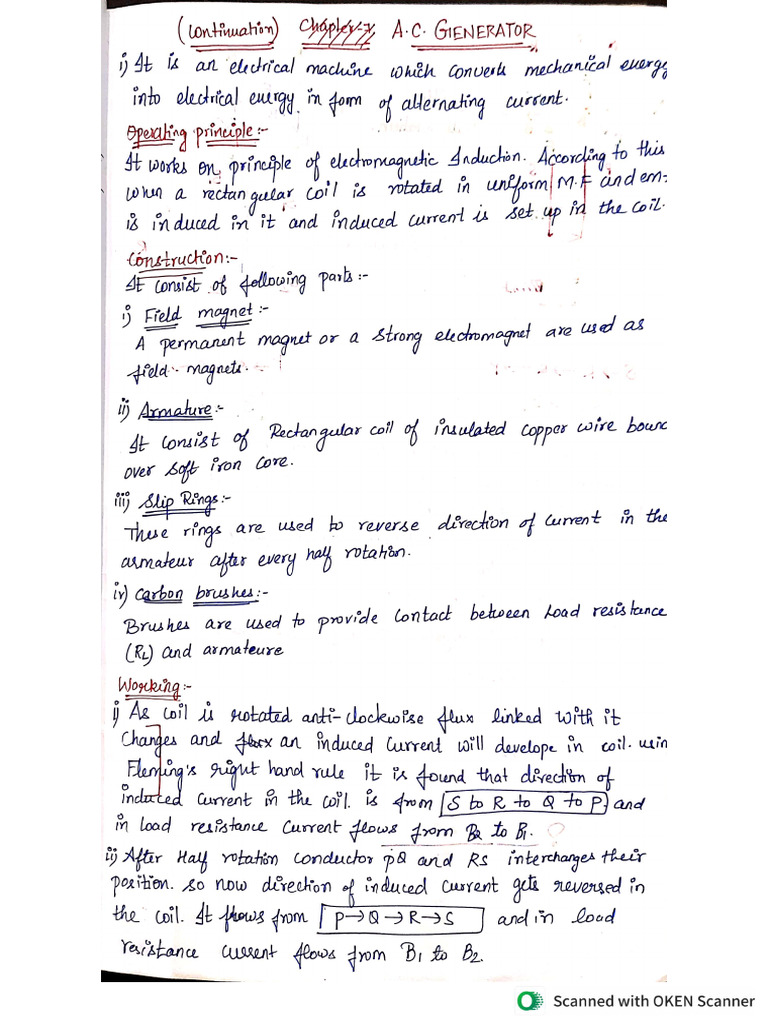 (Continuation) Chapter-7 A.C. GIENERATOR
i) It is an electrical machine which converts mechanical energy
into electrical energy in form of alternating current.
Operating principle:-
It works on principle of electromagnetic Induction. According to this
when a rectangular coil is rotated in uniform M.F and em-
is induced in it and induced current is set up in the coil.
Construction:-
It consist of following parts:-
i) Field magnet:-
A permanent magnet or a strong electromagnet are used as
field magnets.
ii) Armature:-
It consist of Rectangular coil of insulated copper wire bounc
over soft iron core.
iii) Slip Rings:-
These rings are used to reverse direction of current in the
armateur after every half rotation.
iv) Carbon brushes:-
Brushes are used to provide contact between Load resistance
(RL) and armateure
Working:-
i) As coil is rotated anti-clockwise flux linked with it
Changes and an induced current will develope in coil. usin
Fleming's right hand rule it is found that direction of
induced current in the coil. is from S to R to Q to P and
in load resistance current flows from B2 to B1.
ii) After Half rotation conductor PQ and RS interchanges their
position. so now direction of induced current gets reversed in
the coil. It flows from P→Q→R→S and in load
resistance current flows from B1 to B2.
Scanned with OKEN Scanner